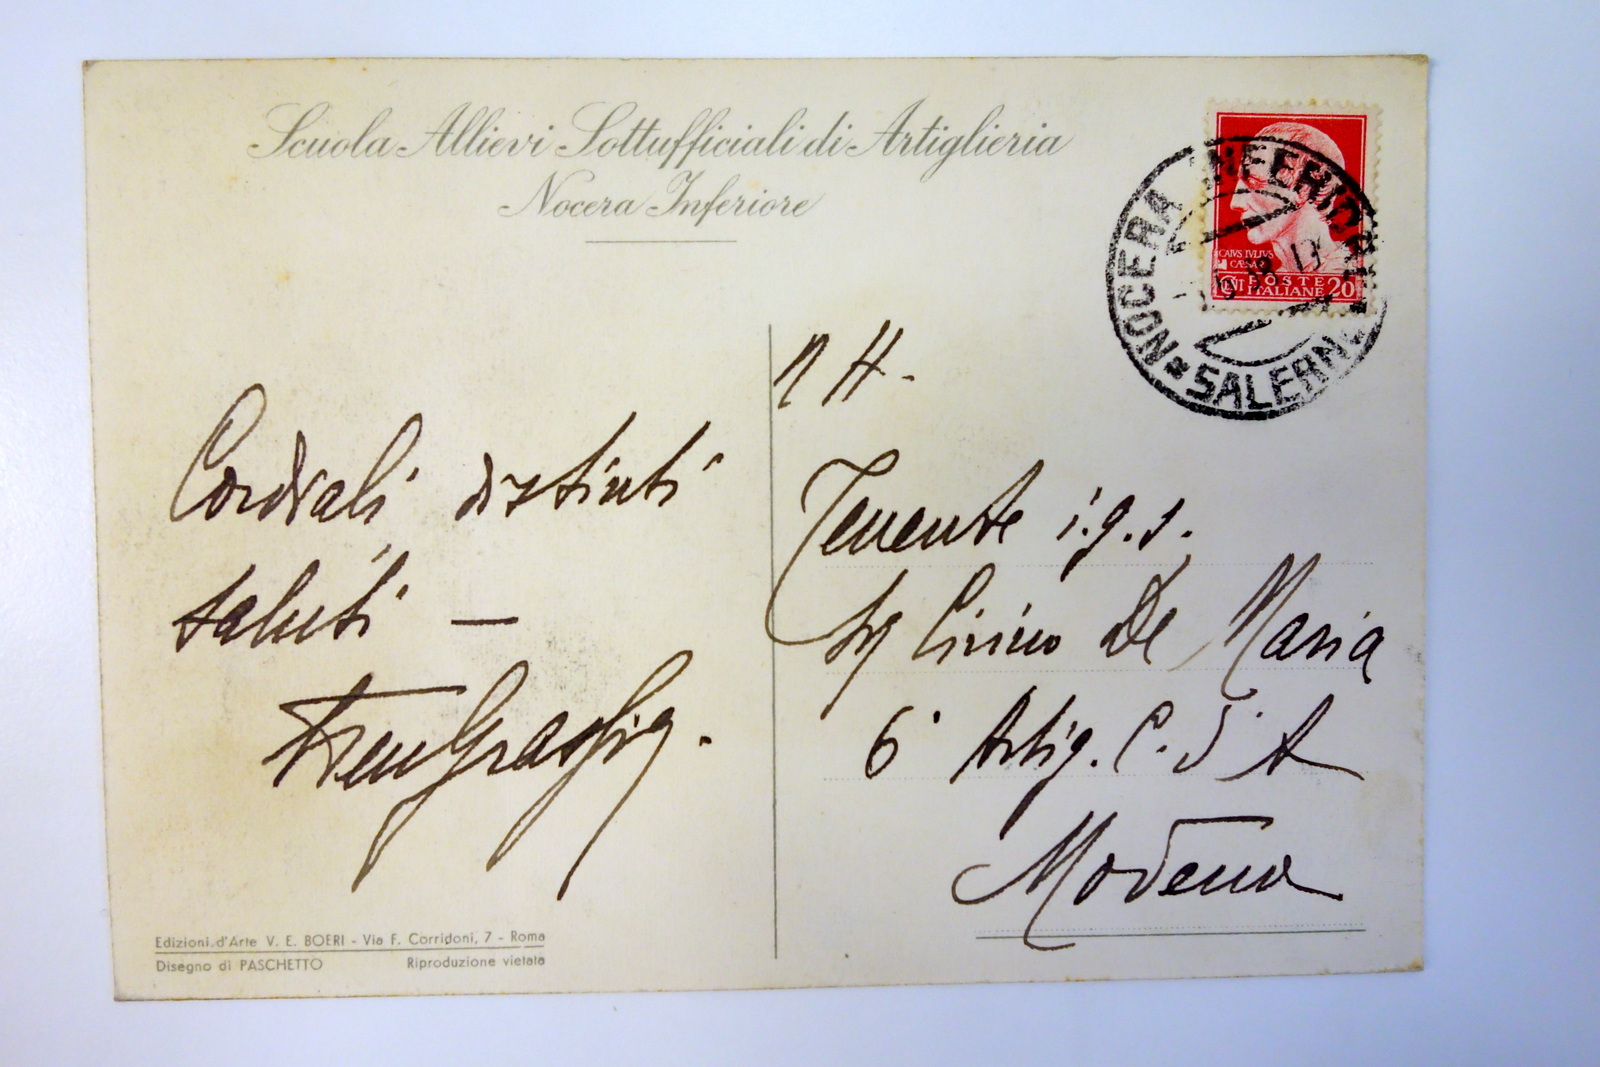 Scuola Allievi Sottufficiali di Artiglieria
Nocera Inferiore
NOCERA INFERIORE
SALERNO
CAIVS IVLIVS
CAESAR
CENT POSTE
ITALIANE 20
N H -
Cordiali distinti
saluti —
Tenente i.g.s.
De Maria
6° Artig. C. d' A
Modena
Edizioni d'Arte V. E. BOERI - Via F. Corridoni, 7 - Roma
Disegno di PASCHETTO Riproduzione vietata